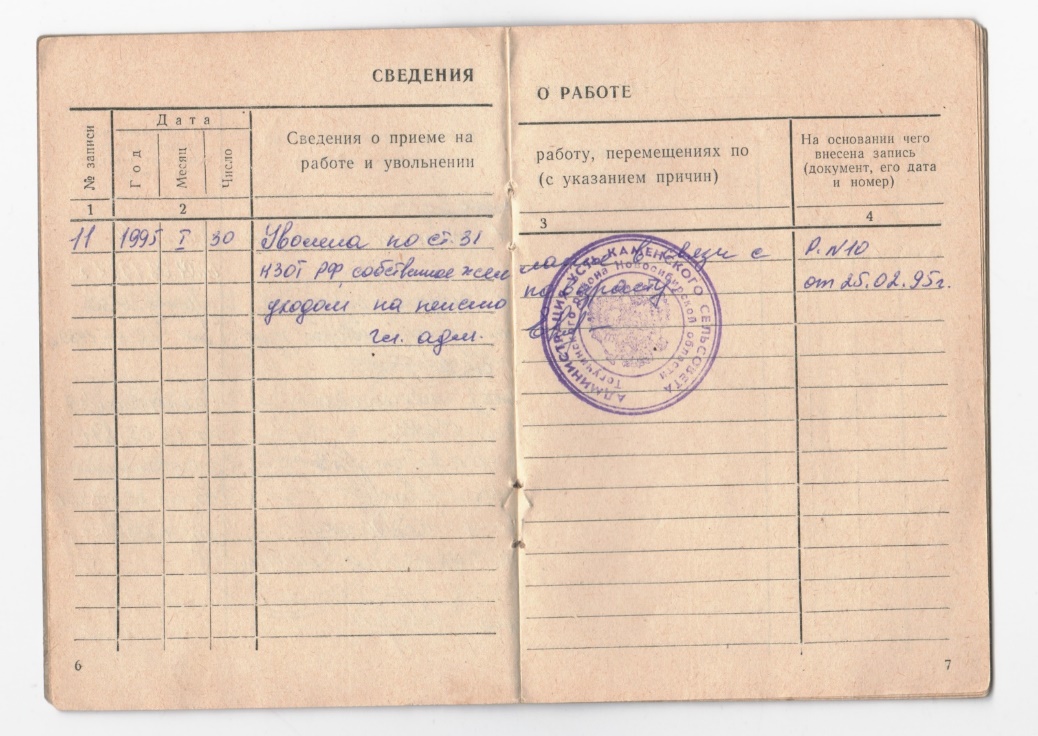 СВЕДЕНИЯ О РАБОТЕ
№ записи
Дата
Год
Месяц
Число
Сведения о приеме на работу, перемещениях по
работе и увольнении (с указанием причин)
На основании чего
внесена запись
(документ, его дата
и номер)
1 2 3 4
11 1995 I 30 Уволена по ст. 31 в связи с Р. N10
КЗОТ РФ, собственное желание
от 25.02.95г.
уходом на пенсию по возрасту
гл. адм.
АДМИНИСТРАЦИЯ УСТЬ-КАМЕНСКОГО СЕЛЬСОВЕТА
Тогучинского района Новосибирской области
6
7